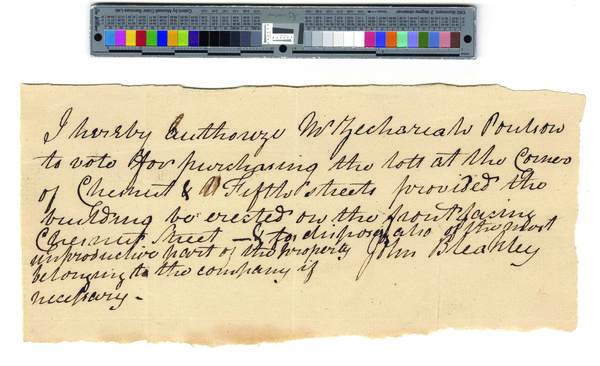 I hereby Authorize Mr Zechariah Poulson
to vote for purchasing the lott at the Corner
of Chesnut & Fifth streets provided the
building be erected on the front facing
Chesnut Street — & to dispose also of the most
unproductive part of the property
belonging to the company if
necessary -
John Bleakley